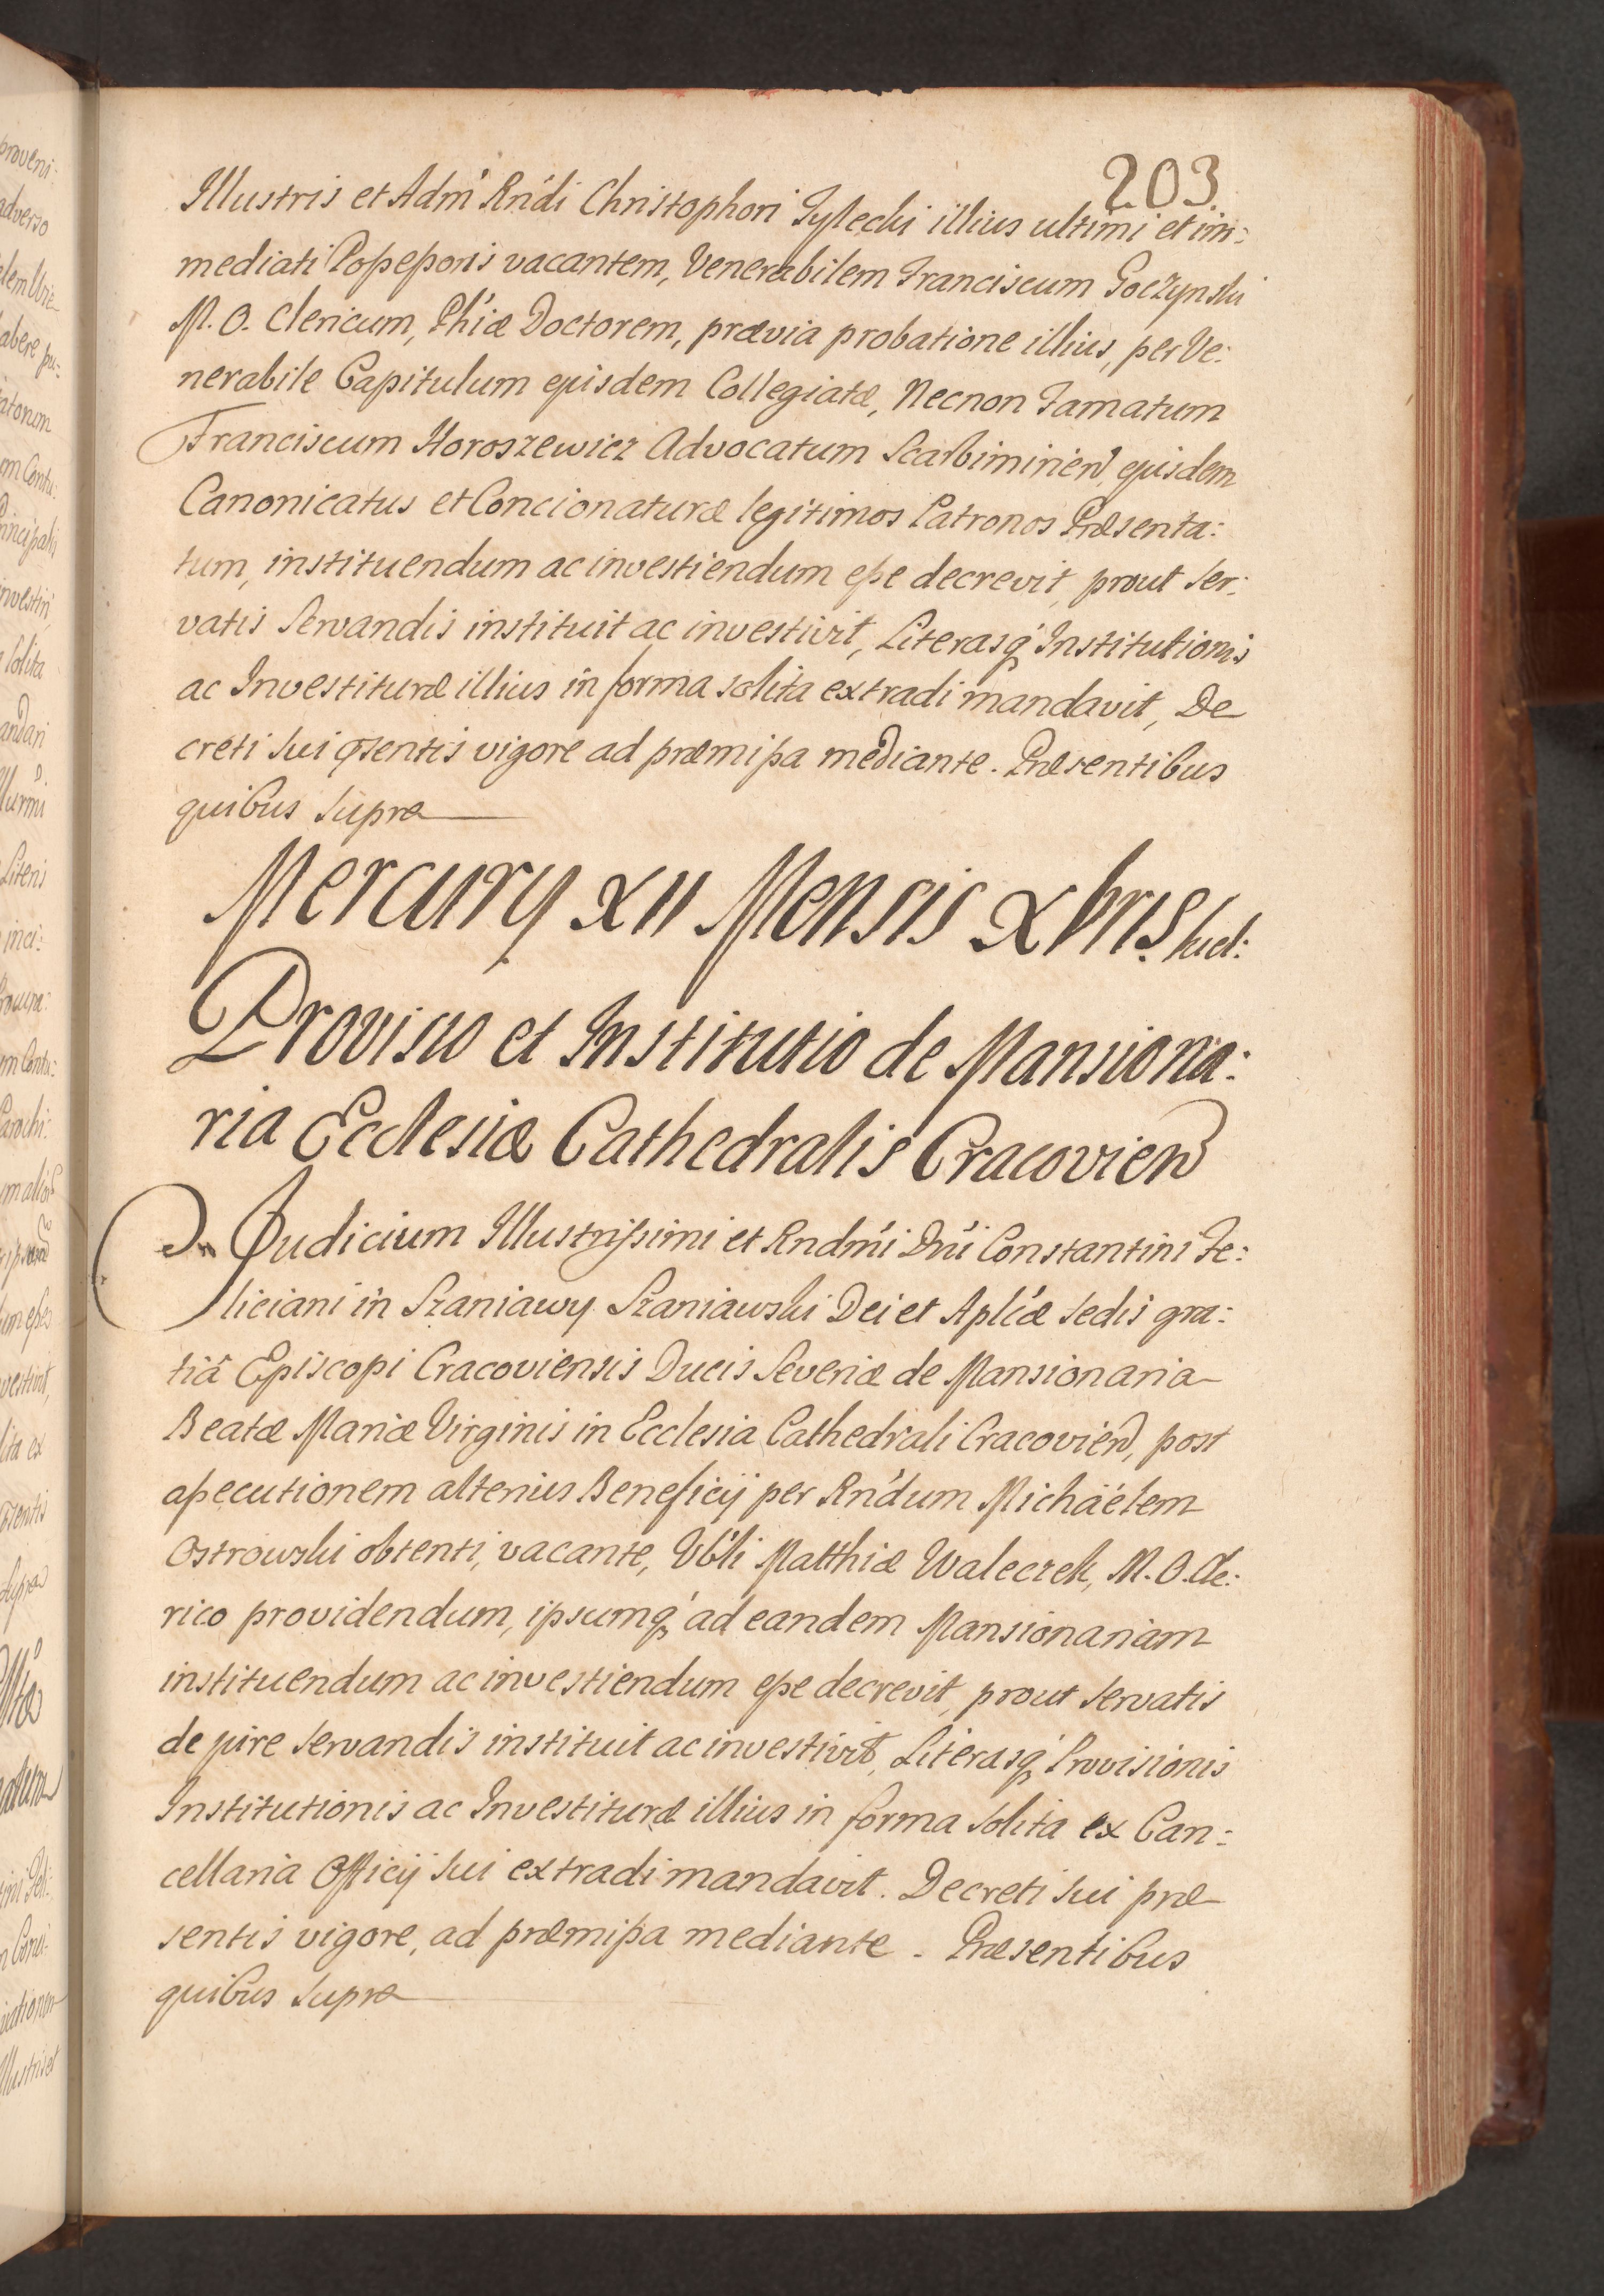 203.
Illustris et Adm̃ Rñdi Christophori Tyszecki illius ultimi et im:
mediati Possessoris vacantem, Venerabilem Franciscum Goczynski
M. O. Clericum, Phiæ Doctorem, prævia probatione illius, per Ve:
nerabile Capitulum ejusdem Collegiatæ, Necnon Famatum
Franciscum Horoszewicz Advocatum Scarbimirien, ejusdem
Canonicatus et Concionaturæ legitimos Patronos Præsenta:
tum, instituendum ac investiendum esse decrevit, prout ser:
vatis Servandis instituit ac investivit, Literasq́ Institutionis
ac Investituræ illius in forma solita extradi mandavit, De
creti sui pſentis vigore ad præmissa mediante. Præsentibus
quibus supra
Mercurÿ XII Mensis Xbris. Jud:
Provisio et Institutio de Mansiona:
ria Ecclesiæ Cathedralis Cracovien
In Judicium Illustrissimi et Rndm̃i Dñi Constantini Fe:
liciani in Szaniawy Szaniawski Dei et Aplicæ sedis gra:
tiâ Episcopi Cracoviensis Ducis Severiæ de Mansionaria
Beatæ Mariæ Virginis in Ecclesia Cathedrali Cracovien, post
assecutionem alterius Beneficij per Rñdum Michäelem
Ostrowski obtenti, vacante, Vbĺi Matthiæ Waleczek, M. O. Cle:
rico providendum, ipsumq́ ad eandem Mansionariam
instituendum ac investiendum esse decrevit, prout servatis
de jure servandis instituit ac investivit, Literasq́ Provisionis
Institutionis ac Investituræ illius in forma solita ex Can:
cellaria Officij sui extradi mandavit. Decreti sui præ
sentis vigore, ad præmissa mediante. Præsentibus
quibus supra